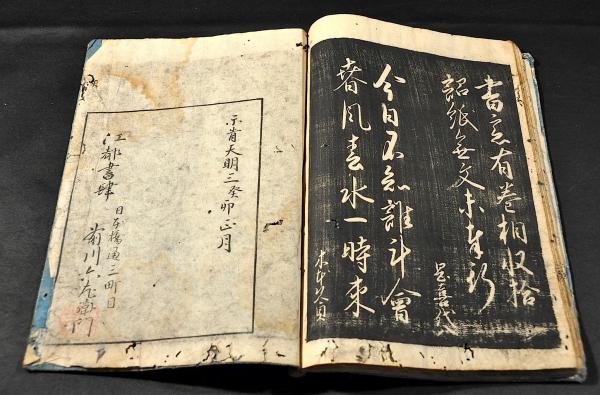 書窓有巻相収拾
詔紙無文未奉行
今日不知誰計會
春風春水一時來
天明三癸卯正月
江都書肆
日本橋通三町目
前川六左衛門